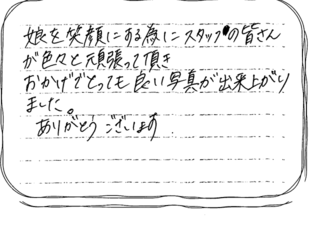 娘を笑顔にする為にスタッフの皆さん
が色々と頑張って頂き
おかげでとっても良い写真が出来上がり
ました。
ありがとうございます